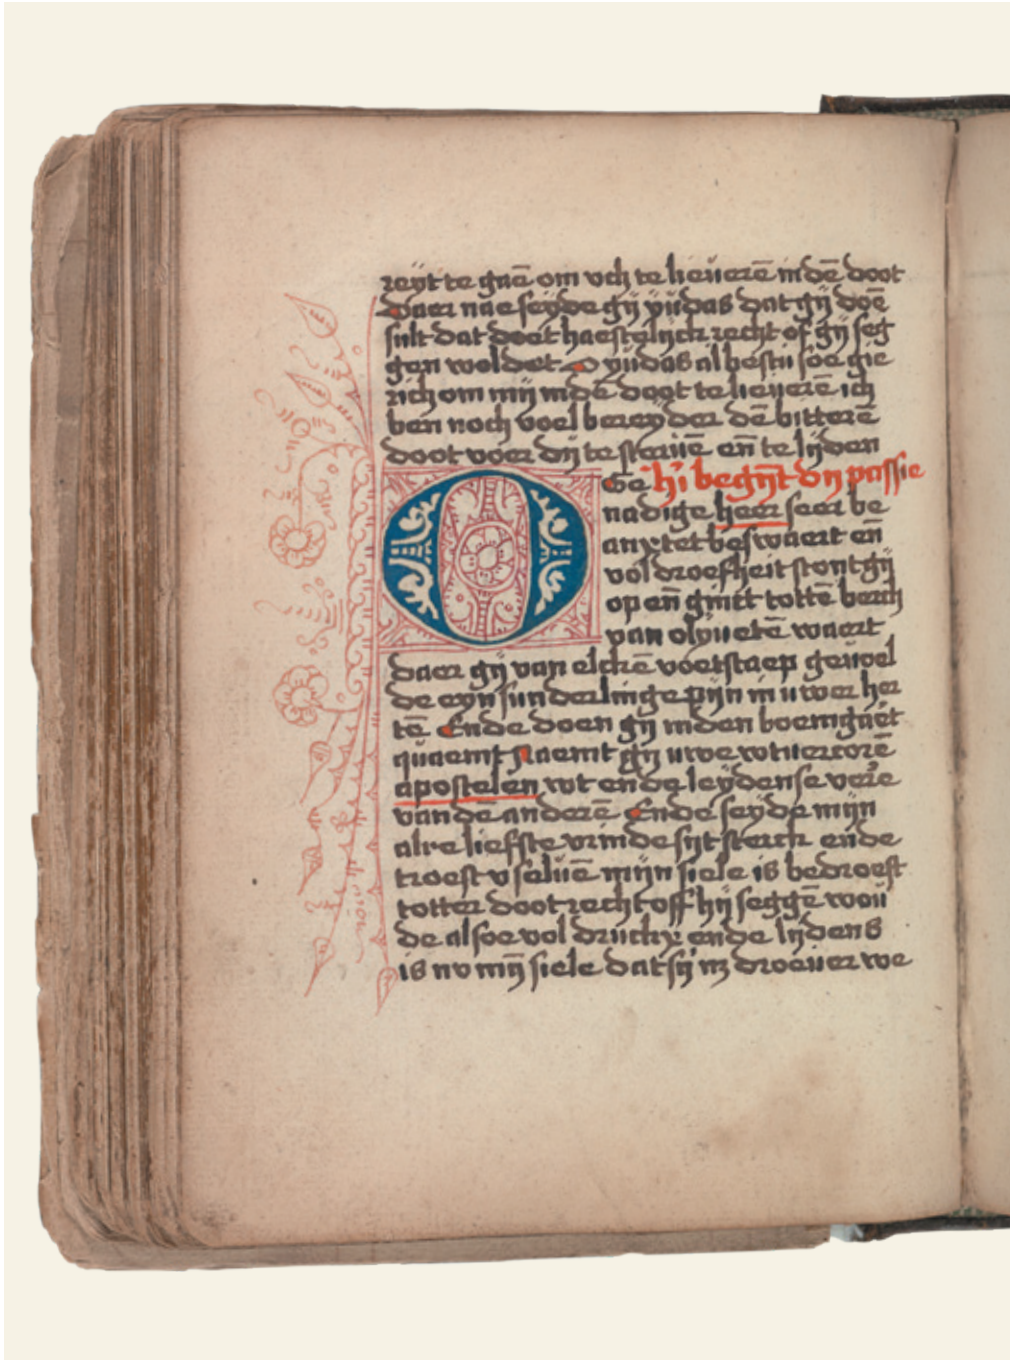 reyt te gaē om vch te lieuerē in dē doot
Daer nae seyde gij yudas dat gij doē
sult dat doet haestelijck recht of gij seg
gen woldet O yudas al bestu soe gie
rich om mij in dē doot te lieuerē ich
ben noch voel bereyder dē bitterē
doot voer dij te steruē eñ te lijden
O Ge hi begȳt dy passie
nadige heer seer be
anxtet beswaert eñ
vol droefheit stont gij
op eñ ginct tottē berch
van olyuetē waert
daer gij van elckē voetstaep geuoel
de eyn sunderlinge pijn in uwer her
tē Ende doen gij inden boemgaēt
quaemt Naemt gij uwe wtuercorē
apostelen wt ende leydense verre
van dē anderē Ende seyde mijn
alre liefste vrinde sijt sterck ende
troest v seluē mijn siele is bedroeft
totter doot recht off hij seggē wou
de alsoe vol druckx ende lijdens
is nv mij siele dat sij nz droeuer we